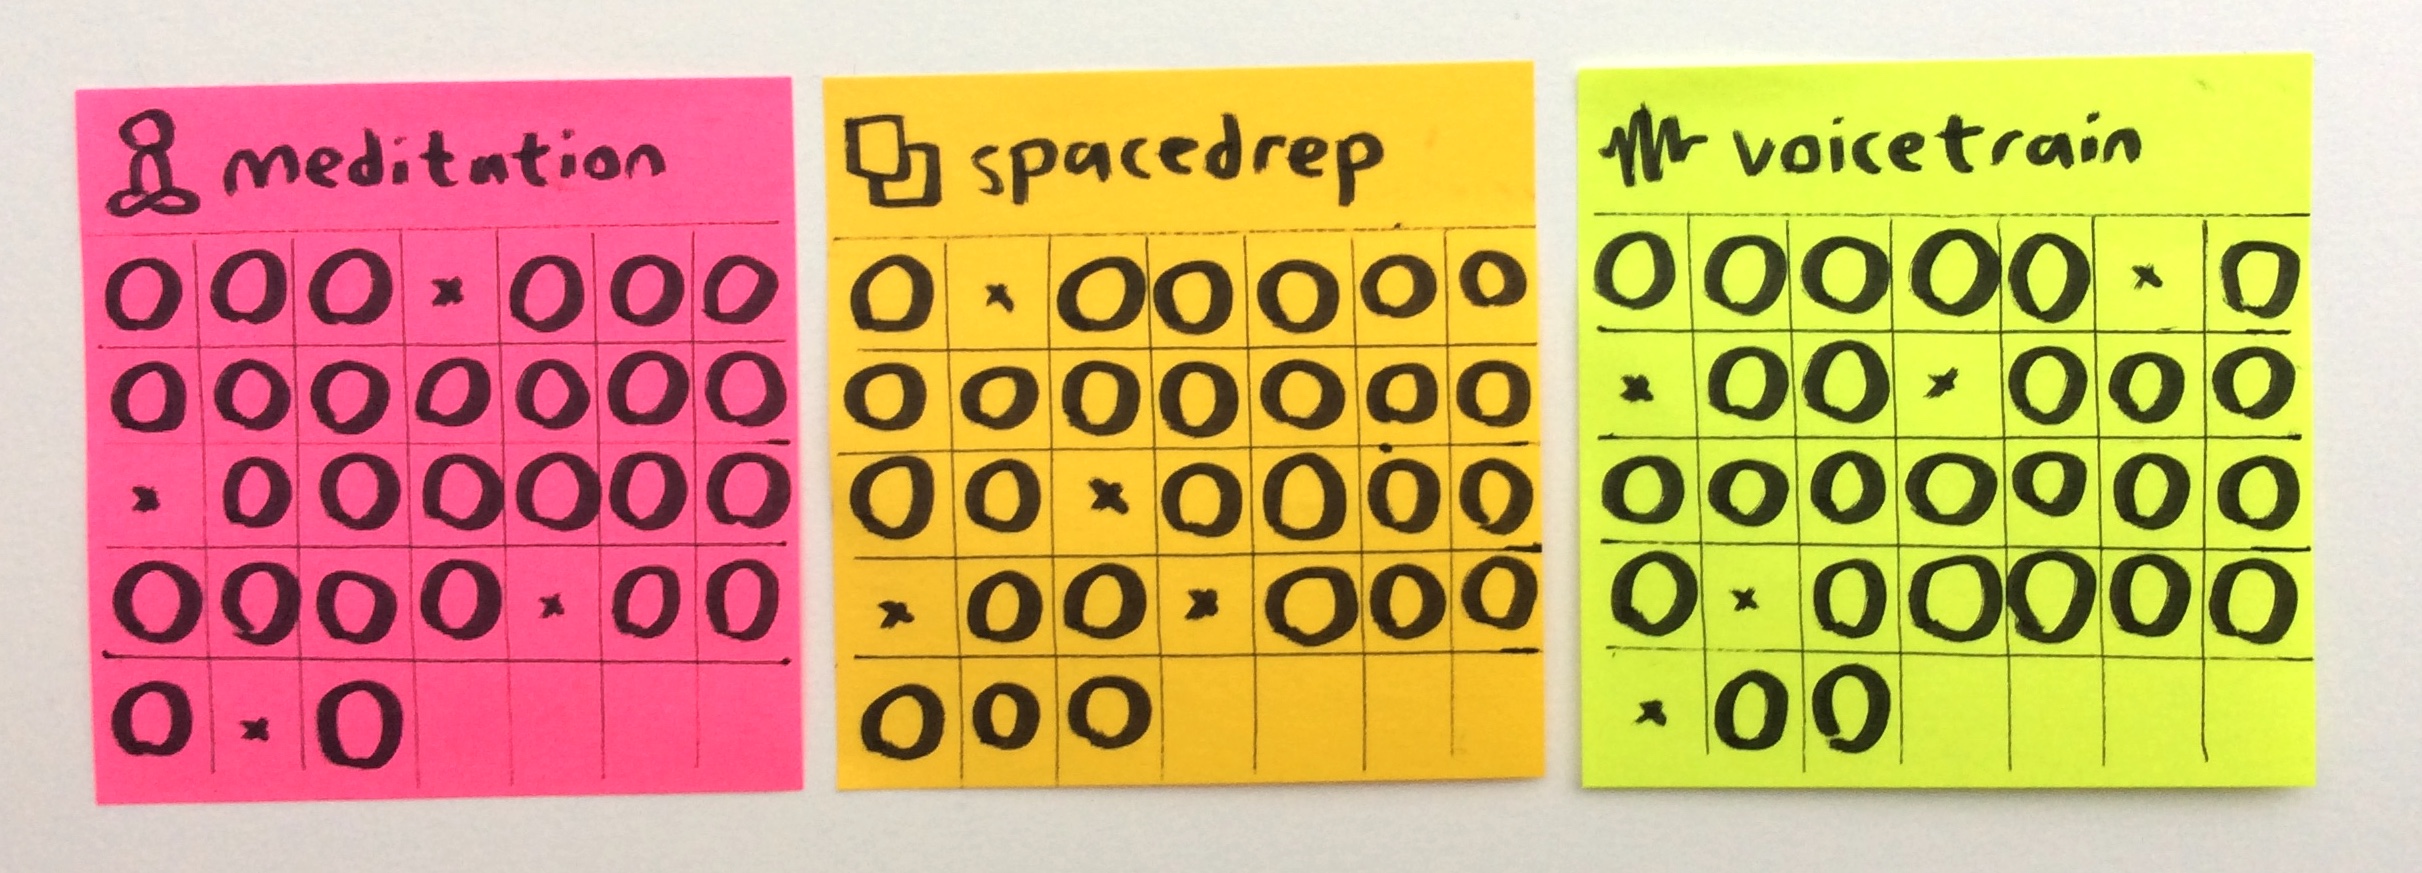 meditation
O O O x O O O
O O O O O O O
x O O O O O O
O O O O x O O
O x O
spacedrep
O x O O O O O
O O O O O O O
O O x O O O O
x O O x O O O
O O O
voicetrain
O O O O O x O
x O O x O O O
O O O O O O O
O x O O O O O
x O O